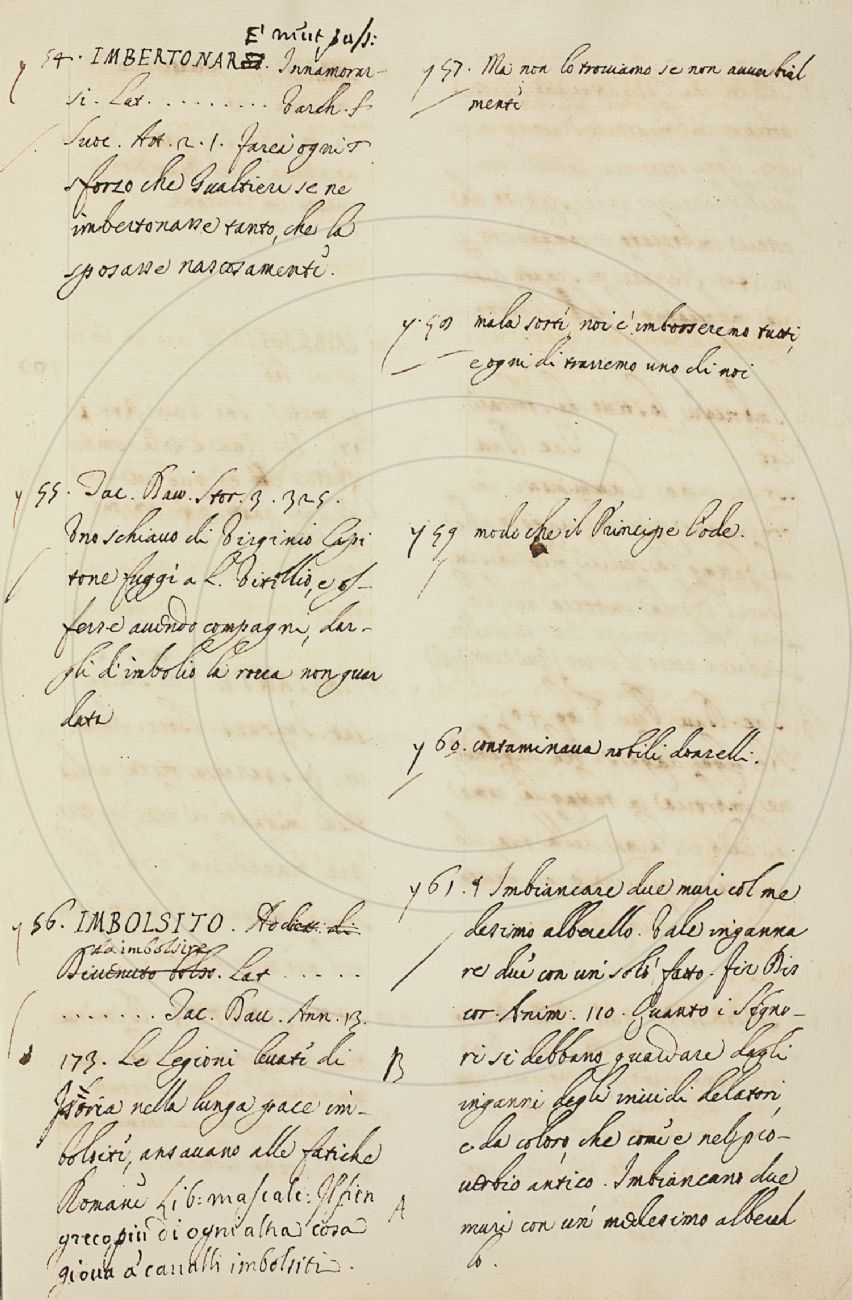 E' neut. pass:
54. IMBERTONAR. Innamorar-
si. Lat. . . . . . . . . Varch. s
Suoc. Att. 2. 1. farei ogni
sforzo che Gualtieri se ne
imbertonasse tanto, che la
sposasse nascosamente.
55. Tac. Dav. Stor. 3. 325.
Uno schiavo di Virginio Capi
tone fuggì a L. Vitellio, e of-
ferse avendo compagni, dar-
gli d'imbolio la rocca non guar
data
56. IMBOLSITO. Add. di
ad imbolsire
Divenuto bolso. Lat . . . . .
. . . . . . . Tac. Dav. Ann. 13.
173. Le Legioni levate di
Soria nella lunga pace im-
bolsite, ansavano alle fatiche
Romane Lib: mascalc: Il fien
greco più di ogni altra cosa
giova a' cavalli imbolsiti.
57. Ma non lo troviamo se non avverbial
mente
58 mala sorte, noi c'imborseremo tutti,
e ogni dì trarremo uno di noi
59 modo che il Principe l'ode.
60. contaminava nobili donzelli.
61. Imbiancare due muri col me
desimo alberello. Vale inganna
re due con un solo fatto. Fir Dis
cor. Anim. 110. Quanto i Signo-
ri si debbano guardare dagli
inganni degli invidi delatori,
B
e da coloro, che come è nel pro-
verbio antico. Imbiancano due
A
muri con un medesimo alberel
lo.